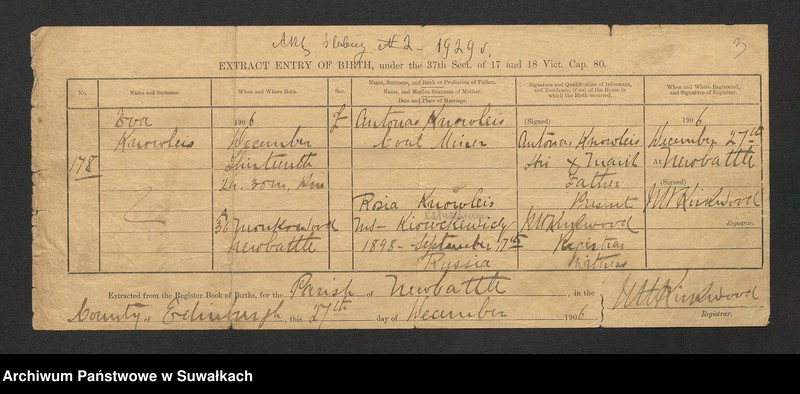 1929 r.
3
EXTRACT ENTRY OF BIRTH, under the 37th Sect. of 17 and 18 Vict. Cap. 80.
No.
Name and Surname.
When and Where Born.
Sex.
Name, Surname, and Rank or Profession of Father.
Name, and Maiden Surname of Mother.
Date and Place of Marriage.
Signature and Qualification of Informant,
and Residence, if out of the House in
which the Birth occurred.
When and Where Registered,
and Signature of Registrar.
178
Eva
Knowleis
1906
December
Thirteenth
2h. 30m. P.m.
36 Monkswood
Newbattle
F
Antonas Knowleis
Coal Miner
Rosia Knowleis
M.S.
1898 - September 17th
Russia
(Signed)
Antonas Knowleis
His x Mark
Father
Present
Registrar
Witness
1906
December 27th
At Newbattle
(Signed)
J W Kirkwood
Registrar.
Extracted from the Register Book of Births, for the Parish of Newbattle, in the
County of Edinburgh, this 27th day of December 1906
Kirkwood
Registrar.
Archiwum Państwowe w Suwałkach